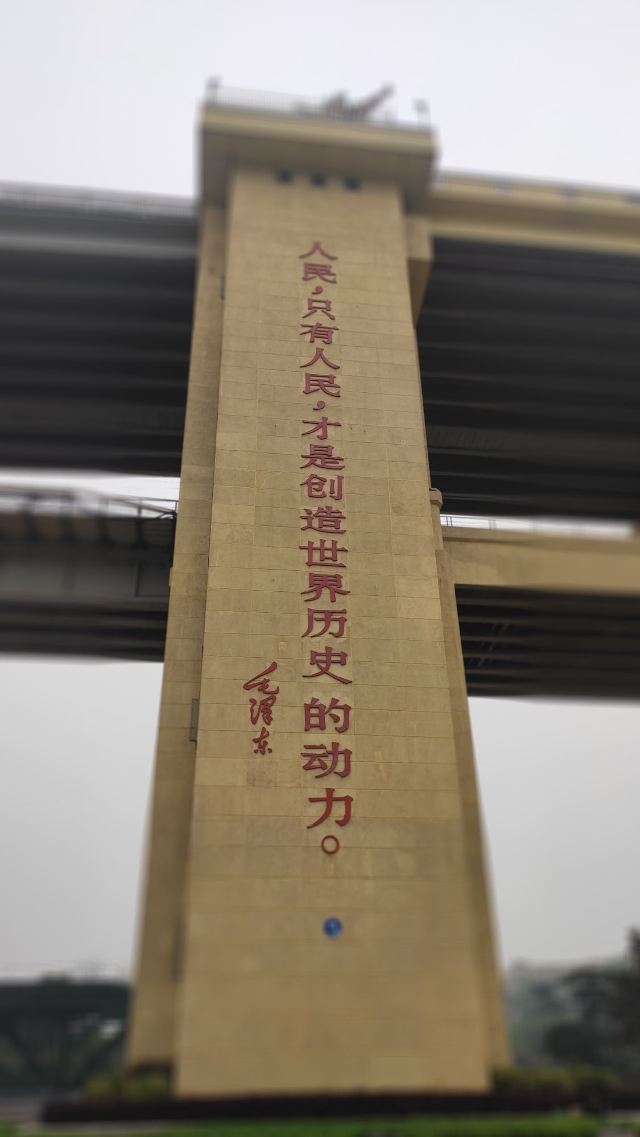 人民,只有人民,才是创造世界历史的动力。
毛泽东